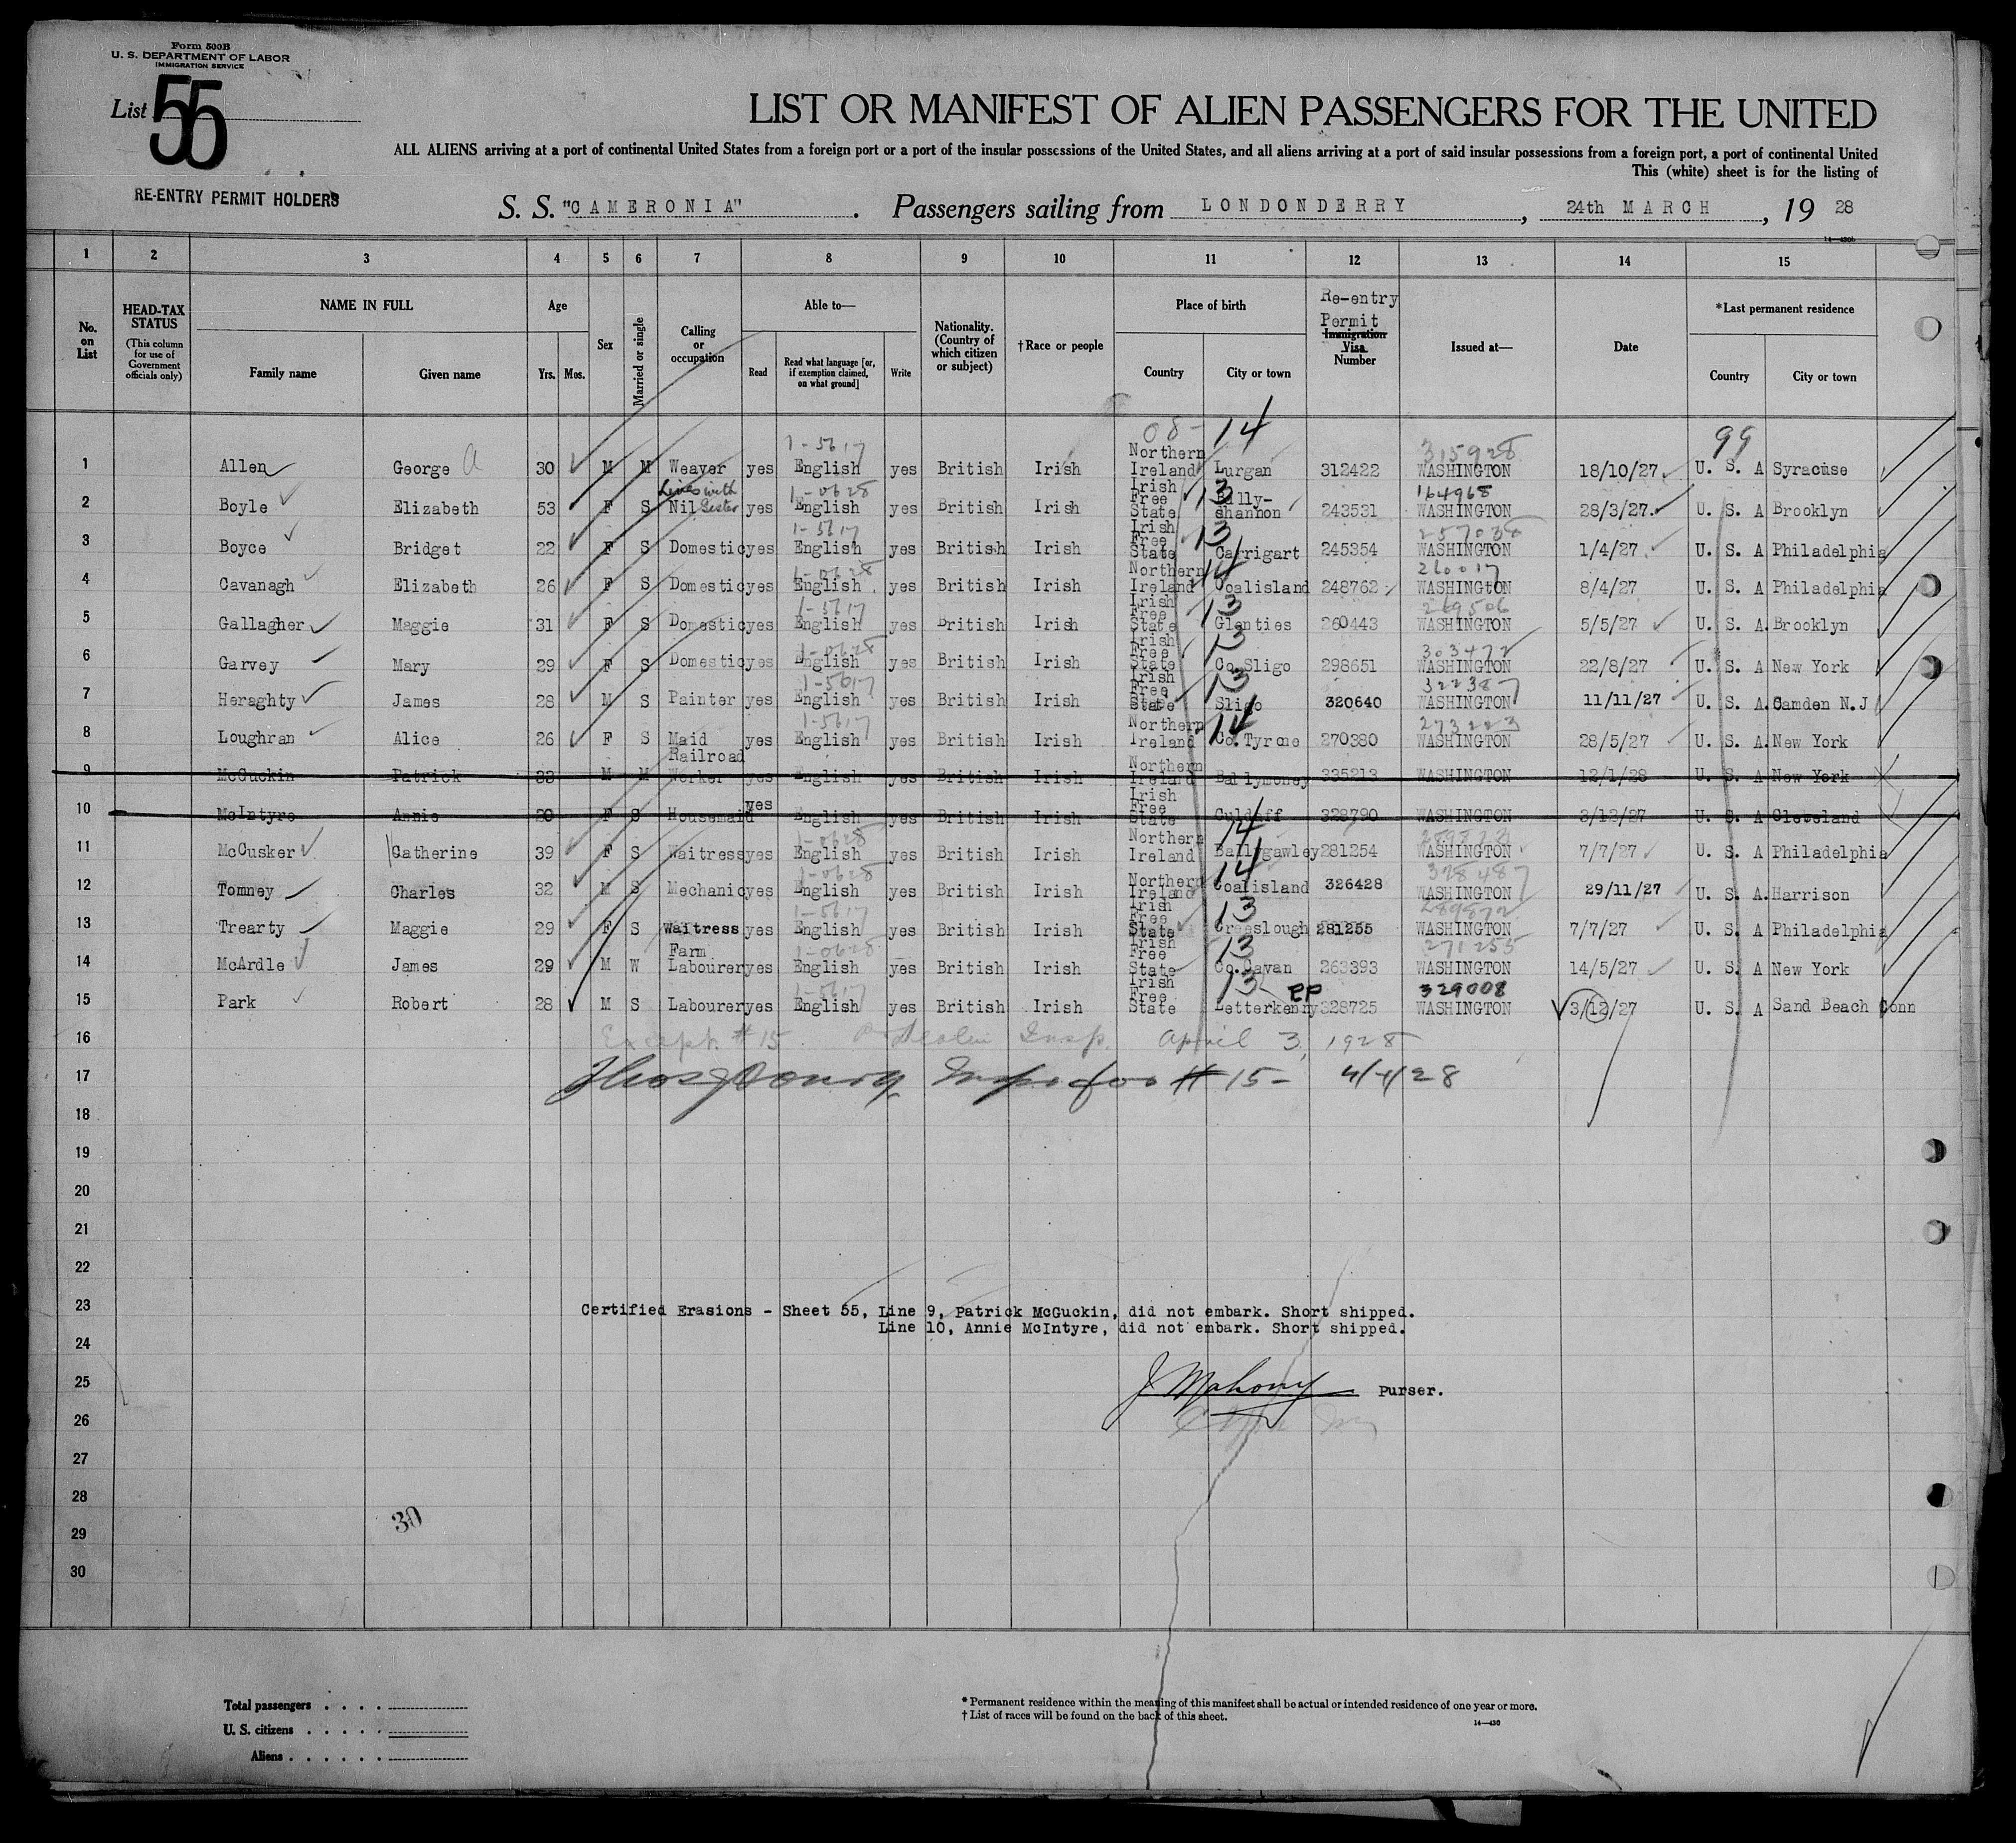 Form 500B
U. S. DEPARTMENT OF LABOR
IMMIGRATION SERVICE
List 55
LIST OR MANIFEST OF ALIEN PASSENGERS FOR THE UNITED
ALL ALIENS arriving at a port of continental United States from a foreign port or a port of the insular possessions of the United States, and all aliens arriving at a port of said insular possessions from a foreign port, a port of continental United
This (white) sheet is for the listing of
RE-ENTRY PERMIT HOLDERS
S. S. "CAMERONIA" . Passengers sailing from LONDONDERRY , 24th MARCH , 19 28
14—430b
1 2 3 4 5 6 7 8 9 10 11 12 13 14 15
No. on List
HEAD-TAX STATUS (This column for use of Government officials only)
NAME IN FULL Family name Given name
Age Yrs. Mos.
Sex
Married or single
Calling or occupation
Able to— Read Read what language [or, if exemption claimed, on what ground] Write
Nationality. (Country of which citizen or subject)
†Race or people
Place of birth Country City or town
Re-entry Permit Immigration Visa Number
Issued at—
Date
*Last permanent residence Country City or town
08- 14 99
1-5617 315928
1 Allen George A 30 M M Weaver yes English yes British Irish Northern Ireland Lurgan 312422 WASHINGTON 18/10/27 U. S. A Syracuse
Lives with Sister 1-0628 13 164968
2 Boyle Elizabeth 53 F S Nil yes English yes British Irish Irish Free State Bally-shannon 243531 WASHINGTON 28/3/27 U. S. A Brooklyn
1-5617 13
3 Boyce Bridget 22 F S Domestic yes English yes British Irish Irish Free State Carrigart 245354 WASHINGTON 1/4/27 U. S. A Philadelphia
1-0628 14 260017
4 Cavanagh Elizabeth 26 F S Domestic yes English yes British Irish Northern Ireland Coalisland 248762 WASHINGtON 8/4/27 U. S. A Philadelphia
1-5617 13 269506
5 Gallagher Maggie 31 F S Domestic yes English yes British Irish Irish Free State Glenties 260443 WASHINGTON 5/5/27 U. S. A. Brooklyn
1-0628 13 303472
6 Garvey Mary 29 F S Domestic yes English yes British Irish Irish Free State Co. Sligo 298651 WASHINGTON 22/8/27 U. S. A New York
1-5617 13 322387
7 Heraghty James 28 M S Painter yes English yes British Irish Irish Free State Sligo 320640 WASHINGTON 11/11/27 U. S. A. Camden N.J
1-5617 14 273223
8 Loughran Alice 26 F S Maid yes English yes British Irish Northern Ireland Co. Tyrone 270380 WASHINGTON 28/5/27 U. S. A. New York
9 McGuckin Patrick 33 M M Railroad Worker yes English yes British Irish Northern Ireland Ballymoney 335213 WASHINGTON 12/1/28 U. S. A New York
10 McIntyre Annie 20 F S Housemaid yes English yes British Irish Irish Free State Culdaff 328790 WASHINGTON 3/12/27 U. S. A Cleveland
1-0628 14
11 McCusker Catherine 39 F S Waitress yes English yes British Irish Northern Ireland Ballygawley 281254 WASHINGTON 7/7/27 U. S. A Philadelphia
1-0628 14 328487
12 Tomney Charles 32 M S Mechanic yes English yes British Irish Northern Ireland Coalisland 326428 WASHINGTON 29/11/27 U. S. A. Harrison
1-5617 13 289872
13 Trearty Maggie 29 F S Waitress yes English yes British Irish Irish Free State Creeslough 281255 WASHINGTON 7/7/27 U. S. A Philadelphia
1-0628 13 271255
14 McArdle James 29 M W Farm Labourer yes English yes British Irish Irish Free State Co. Cavan 263393 WASHINGTON 14/5/27 U. S. A New York
1-5617 13 PP 329008
15 Park Robert 28 M S Labourer yes English yes British Irish Irish Free State Letterkenny 328725 WASHINGTON 3/12/27 U. S. A Sand Beach Conn
16 Except #15 Insp. April 3, 1928
17 Insp for # 15- 4/4/28
18
19
20
21
22
23 Certified Erasions - Sheet 55, Line 9, Patrick McGuckin, did not embark. Short shipped.
Line 10, Annie McIntyre, did not embark. Short shipped.
24
25 J Mahony Purser.
26
27
28
29 30
30
Total passengers
U. S. citizens
Aliens
* Permanent residence within the meaning of this manifest shall be actual or intended residence of one year or more.
† List of races will be found on the back of this sheet.
14—430